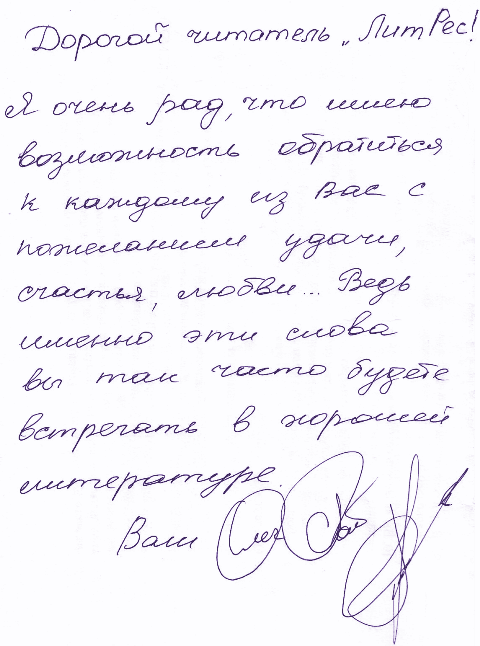 Дорогой читатель „ЛитРес!
Я очень рад, что имею
возможность обратиться
к каждому из Вас с
пожеланием удачи,
счастья, любви... Ведь
именно эти слова
вы так часто будете
встречать в хорошей
литературе.
Ваш Олег Рой